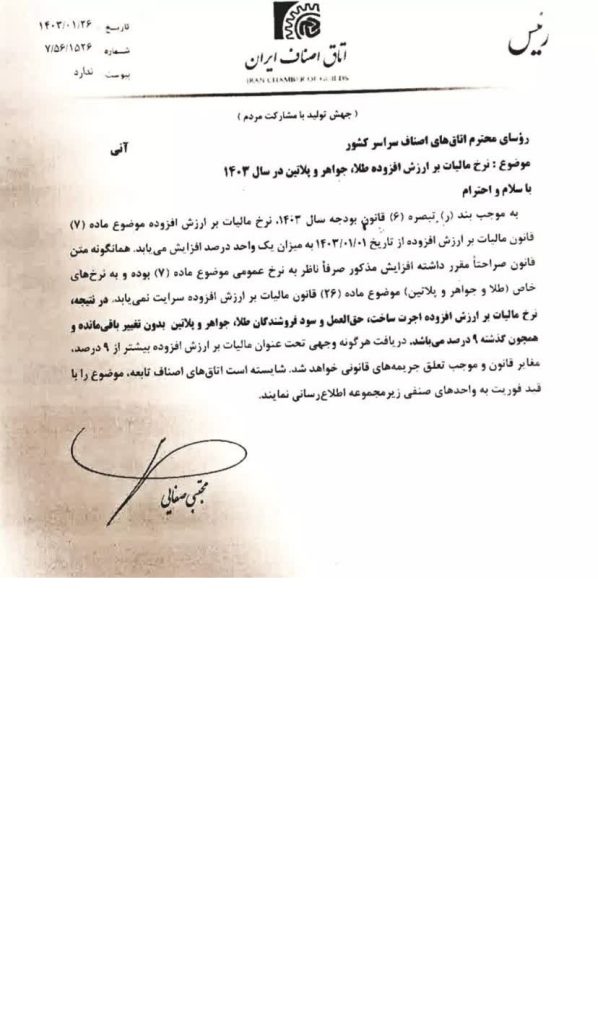 رئیس
اتاق اصناف ایران
IRAN CHAMBER OF GUILDS
تاریخ ۱۴۰۳/۰۱/۲۶
شماره ۷/۵۶/۱۵۲۶
پیوست ندارد
( جهش تولید با مشارکت مردم )
رؤسای محترم اتاق‌های اصناف سراسر کشور
آنی
موضوع : نرخ مالیات بر ارزش افزوده طلا، جواهر و پلاتین در سال ۱۴۰۳
با سلام و احترام
به موجب بند (ر) تبصره (۶) قانون بودجه سال ۱۴۰۳، نرخ مالیات بر ارزش افزوده موضوع ماده (۷)
قانون مالیات بر ارزش افزوده از تاریخ ۱۴۰۳/۰۱/۰۱ به میزان یک واحد درصد افزایش می‌یابد. همانگونه متن
قانون صراحتاً مقرر داشته افزایش مذکور صرفاً ناظر به نرخ عمومی موضوع ماده (۷) بوده و به نرخ‌های
خاص (طلا و جواهر و پلاتین) موضوع ماده (۲۶) قانون مالیات بر ارزش افزوده سرایت نمی‌یابد. در نتیجه،
نرخ مالیات بر ارزش افزوده اجرت ساخت، حق‌العمل و سود فروشندگان طلا، جواهر و پلاتین بدون تغییر باقی‌مانده و
همچون گذشته ۹ درصد می‌باشد. دریافت هرگونه وجهی تحت عنوان مالیات بر ارزش افزوده بیشتر از ۹ درصد،
مغایر قانون و موجب تعلق جریمه‌های قانونی خواهد شد. شایسته است اتاق‌های اصناف تابعه، موضوع را با
قید فوریت به واحدهای صنفی زیرمجموعه اطلاع‌رسانی نمایند.
مجتبی صفایی